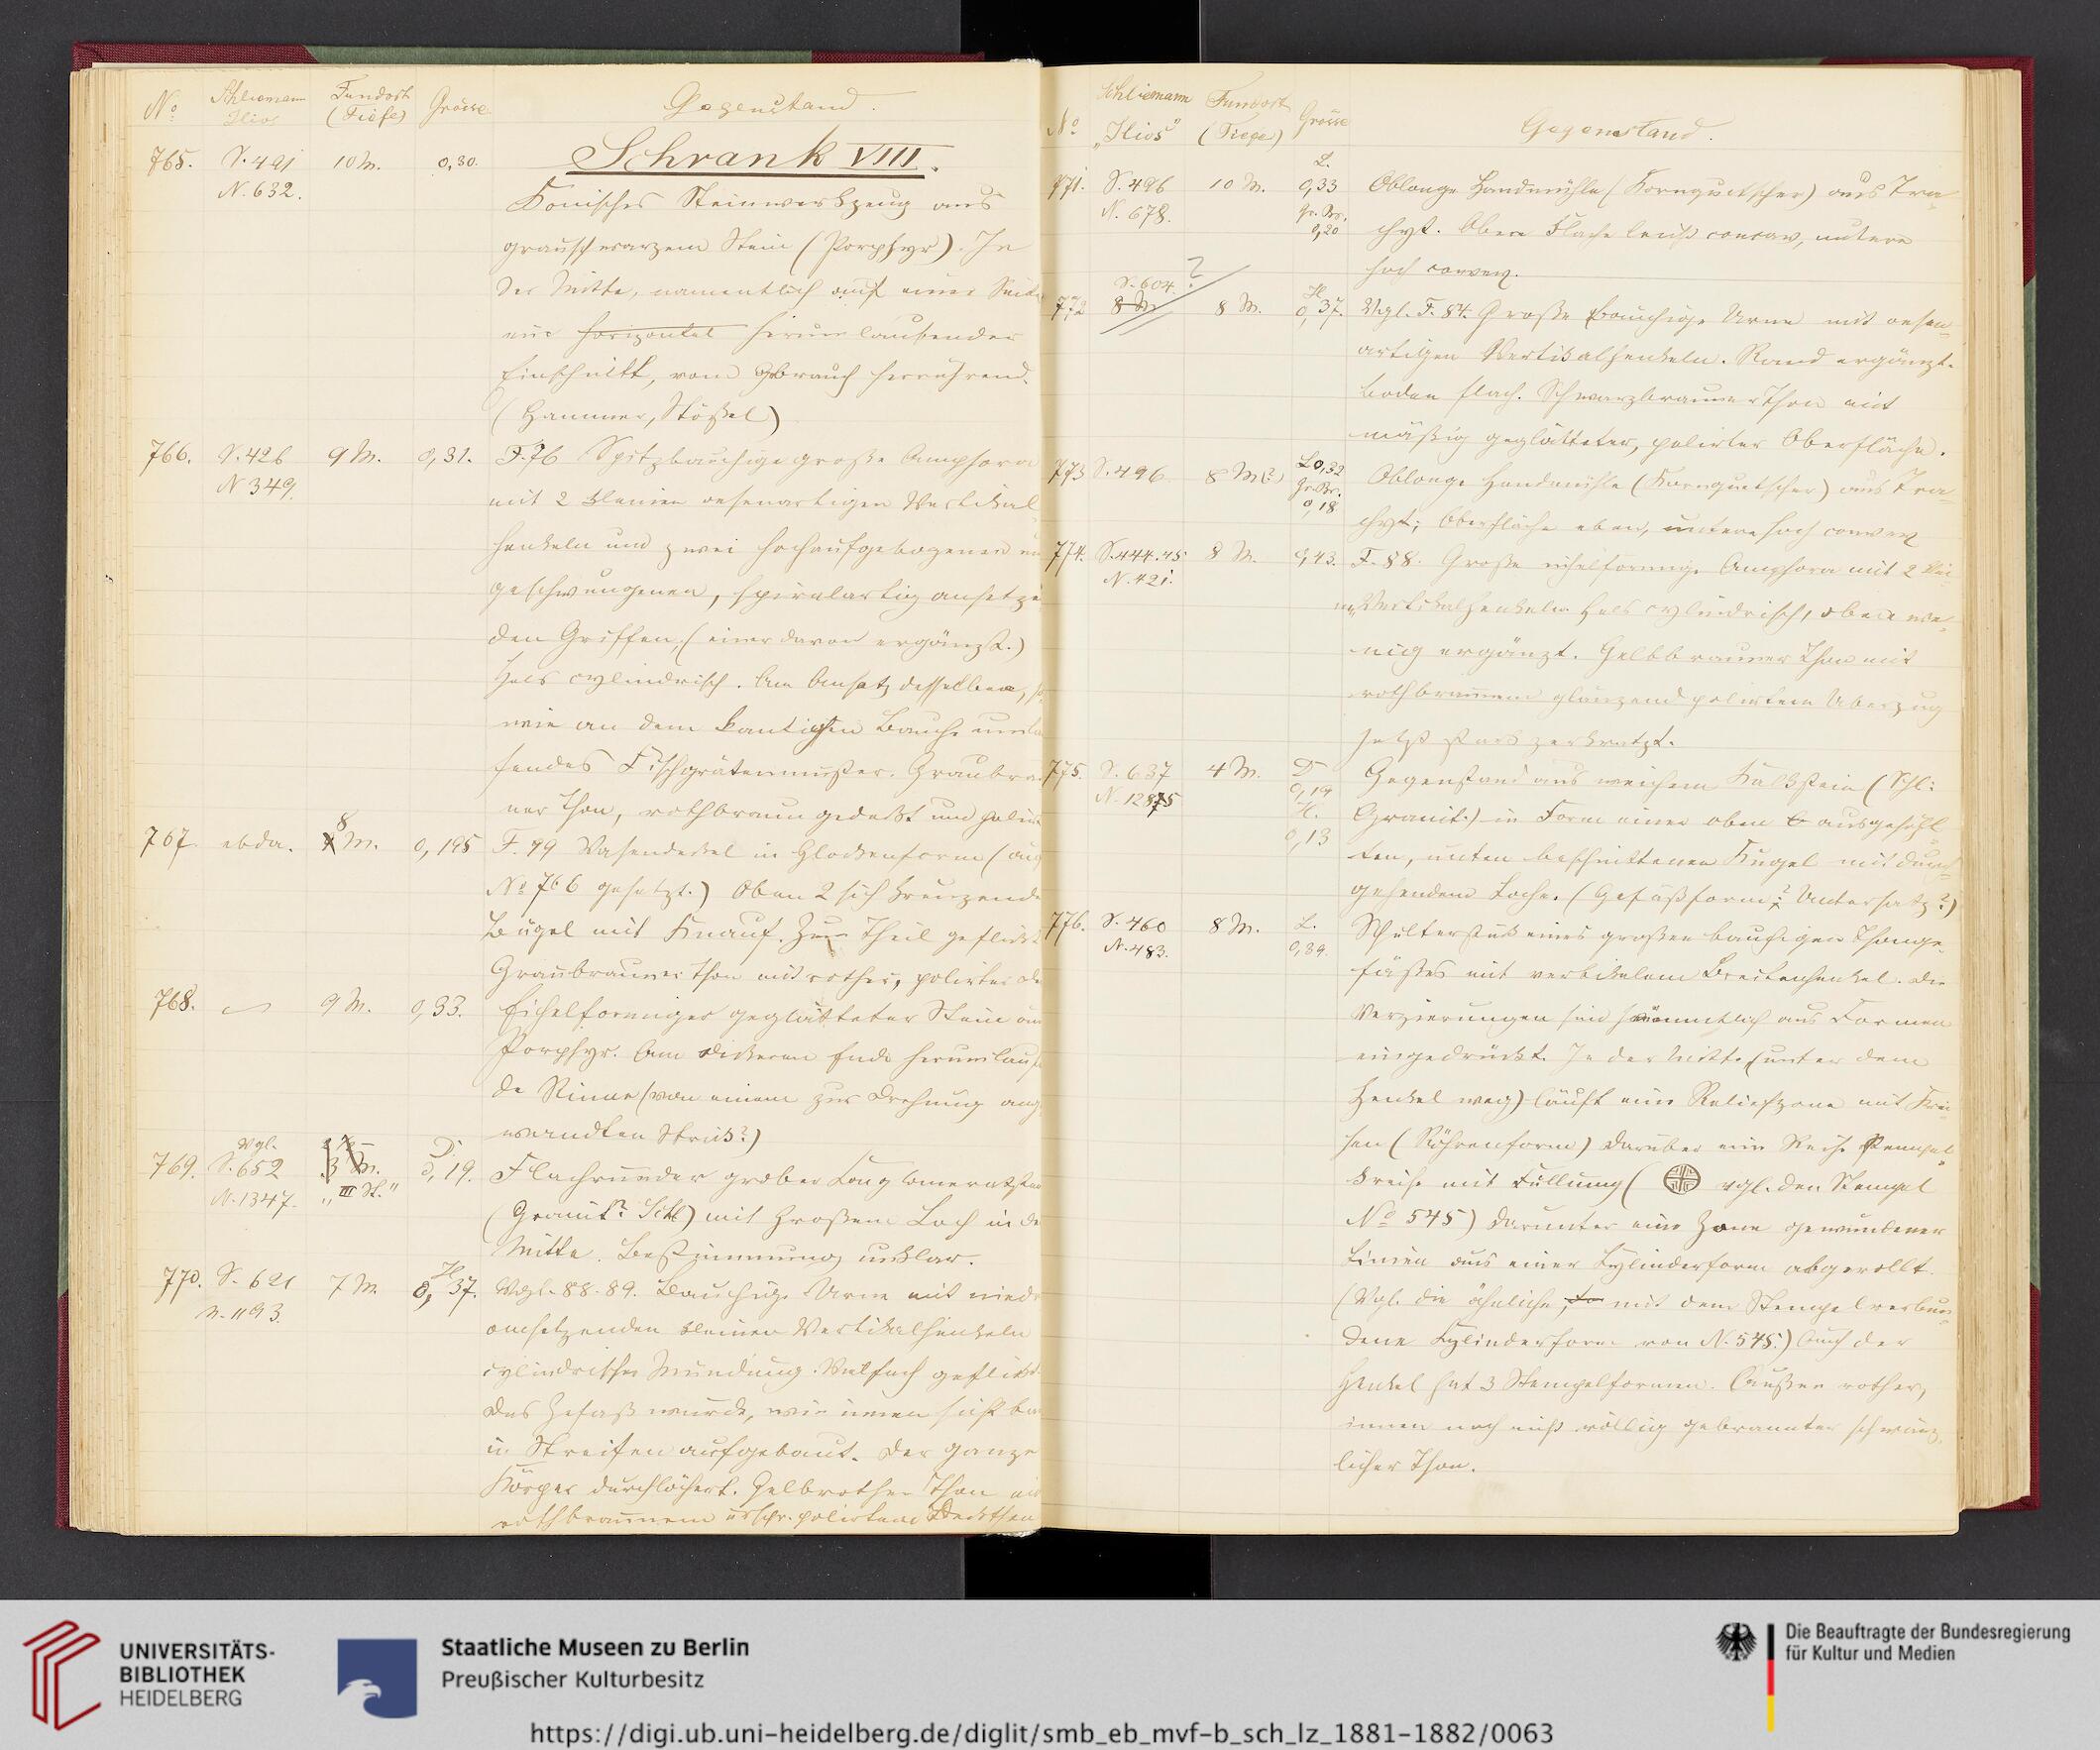 No Schliemann Ilios Fundort (Tiefe) Grösse Gegenstand.
Schrank VIII.
765. S. 491 N. 632. 10 M. 0,30.
Konisches Steinwerkzeug aus
grauschwarzem Stein (Porphyr). In
der Mitte, namentlich auf einer Seite
eine horizontal herumlaufender
Einschnitt, vom Gebrauch herrührend.
(Hammer, Stößel)
766. S. 426 N 349. 9 M. 0,31. F. 76 Spitzbauchige große Amphora
mit 2 kleinen oesenartigen Vertikal
henkeln und zwei hochaufgebogenen
geschwungenen, spiralartig ansetze
den Griffen, (einer davon ergänzt.)
Hals cylindrisch. Am Ansatz desselben,
wie an dem kantigen Bauche
fendes Fischgrätenmuster. Graubrau
ner Thon, rothbraun gedeckt und
767. ebda. 8 M. 0,195 F. 99 Vasendeckel in Glockenform (auf
No 766 gesetzt.) Oben 2 sich kreuzende
Bügel mit Knauf. Zum Theil geflickt
Graubrauner Thon mit rother, polirter
768. 9 M. 0,33. Eichelförmiger geglätteter Stein
Porphyr. Am dickeren Ende herumlauf
de Rinne (von einem zur Drehung ang
wandten Strick?)
769. Vgl. S. 652 N. 1347. 3 M. „III St." D. 0,19. Flachrunder grober Conglomeratstein
(Granit? Schl) mit großem Loch in de
Mitte. Bestimmung unklar.
770. S. 621 N. 1193. 7 M. H 0,37. Vgl. 88. 89. Bauchige Urne mit
ansetzenden kleinen Vertikalhenkeln
cylindrischer Mündung. Vielfach geflickt.
Das Gefäß wurde, wie innen sicht
in Streifen aufgebaut. Der ganze
Körper durchlöchert. Gelbrother Thon
rothbraunem urspr. polirtem Deckthon
No Schliemann „Ilios" Fundort (Tiefe) Grösse Gegenstand.
771. S. 496 N. 678. 10 M. L. 0,33 Gr. Br. 0,20 Oblonge Handmühle (Kornquetscher) aus Tra-
chyt. Obere Fläche leicht concav, untere
hoch convex.
772 S. 604. ? 8 M 8 M. H 0,37. Vgl. F. 84. Große bauchige Urne mit oesen-
artigen Vertikalhenkeln. Rand ergänzt.
Boden flach. Schwarzbrauner Thon mit
mäßig geglätteter, polirter Oberfläche.
773 S. 496. 8 M(?) L 0,32 Gr. Br. 0,18 Oblonge Handmühle (Kornquetscher) aus Tra-
chyt; Oberfläche eben, untere hoch convex
774. S. 444.45 N. 421. 8 M. 0,43. F. 88. Große eichelförmige Amphora mit 2
Vertikalhenkeln Hals cylindrisch, oben we-
nig ergänzt. Gelbbrauner Thon mit
rothbraunem glänzend polirtem Überzug
jetzt stark zerkratzt.
775. S. 637 N. 1275 4 M. D 0,19 H. 0,13 Gegenstand aus weichem Kalkstein (Schl:
Granit.) in Form einer oben ausgehöhl-
ten, unten beschnittenen Kugel mit durch-
gehendem Loche. (Gefäßform? Untersatz?)
776. S. 460 N. 483. 8 M. L. 0,39. Schulterstück eines großen bauchigen Thonge-
fäßes mit vertikalem Breitenhenkel. Die
Verzierungen sind sämmtlich aus Formen
eingedrückt. In der Mitte (unter dem
Henkel weg) läuft eine Reliefzone mit Krei-
sen (Röhrenform) darüber eine Reihe Stempel-
kreise mit Füllung ( vgl. den Stempel
No 545) Darunter eine Zone gewundener
Linien aus einer Cylinderform abgerollt.
(Vgl. die ähnliche, mit dem Stempel verbun-
dene Cylinderform von N. 545.) Auch der
Henkel hat 3 Stempelformen. Außen rother,
innen noch nicht völlig gebrannter schwärz-
licher Thon.
UNIVERSITÄTS-
BIBLIOTHEK
HEIDELBERG
Staatliche Museen zu Berlin
Preußischer Kulturbesitz
Die Beauftragte der Bundesregierung
für Kultur und Medien
https://digi.ub.uni-heidelberg.de/diglit/smb_eb_mvf-b_sch_lz_1881-1882/0063